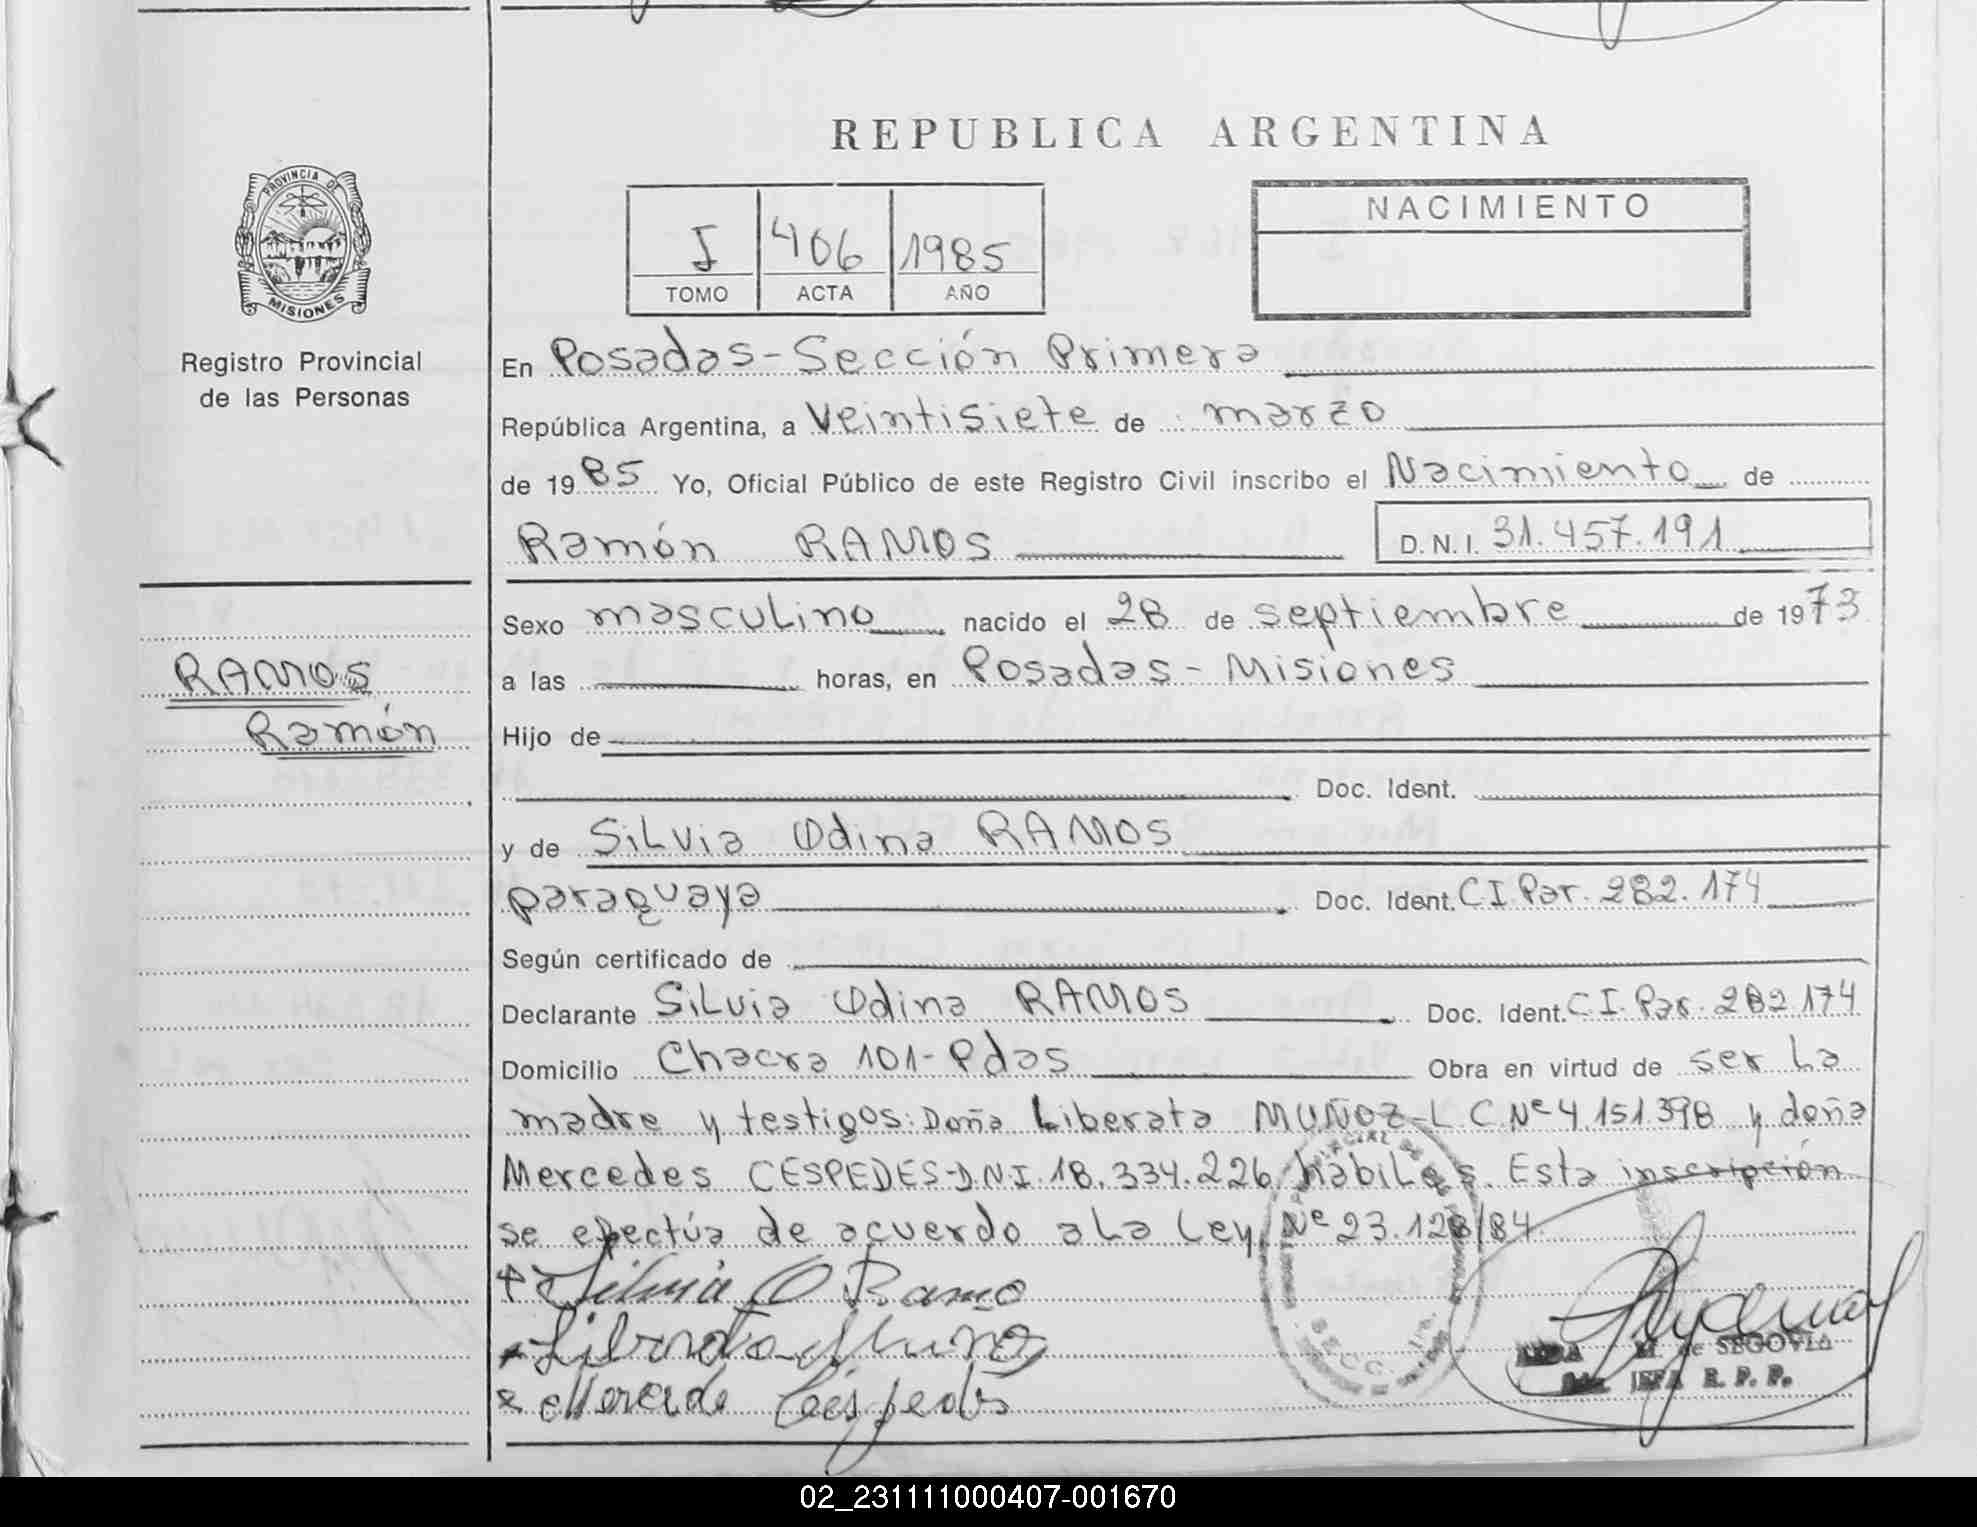 REPUBLICA ARGENTINA
PROVINCIA DE
MISIONES
Registro Provincial
de las Personas
I 406 1985
TOMO ACTA AÑO
NACIMIENTO
En Posadas-Sección Primera
República Argentina, a Veintisiete de marzo
de 1985 Yo, Oficial Público de este Registro Civil inscribo el Nacimiento de
Ramón RAMOS D.N.I. 31.457.191
Sexo masculino nacido el 28 de septiembre de 1973
RAMOS
Ramón
a las horas, en Posadas - Misiones
Hijo de
Doc. Ident.
y de SiLvia Odina RAMOS
paraguaya Doc. Ident. C I. Par. 282.174
Según certificado de
Declarante SiLvia Odina RAMOS Doc. Ident. C I. Par. 282.174
Domicilio Chacra 101-Pdas Obra en virtud de ser La
madre y testigos: Doña Liberata MUÑOZ-L.C.Nº 4.151.398 y doña
Mercedes CESPEDES-D.N.I. 18.334.226 hábiLes. Esta inscripción
se efectúa de acuerdo a La Ley Nº 23.128/84.
Silvia O Ramo
Liberata Muños
Mercede Céspedes
SECC. 1ra.
M. de SEGOVIA
JEFA R. P. P.
02_231111000407-001670